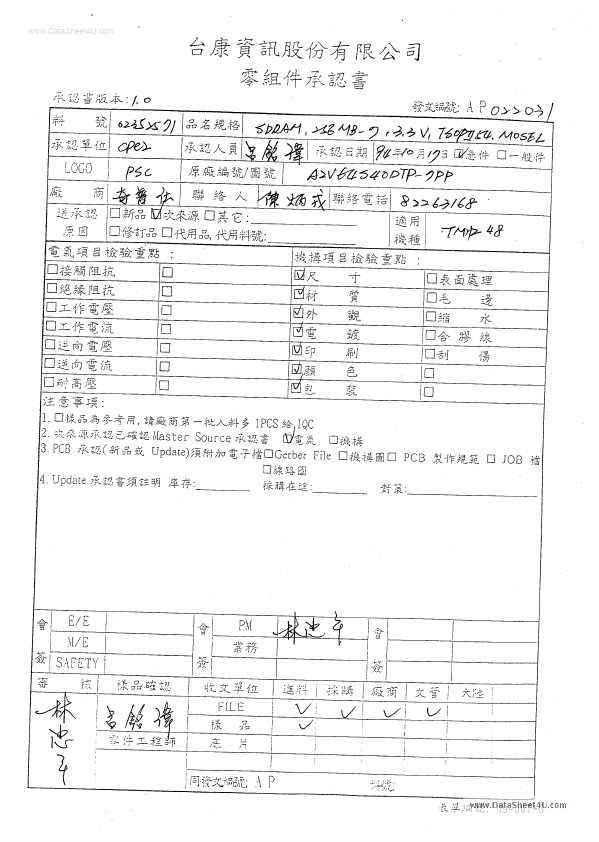 www.DataSheet4U.com
台康資訊股份有限公司
零組件承認書
承認書版本:1.0
發文編號: AP022031
料 號 62352571 品名規格 SDRAM, 256MB-7, 3.3V, TSOPII54, MOSEL
承認單位 CPE2 承認人員 呂銘瑋 承認日期 94年10月17日 ☑急件 □一般件
LOGO PSC 原廠編號/圖號 A2V64S40DTP-7PP
廠 商 聯絡人 陳炳戎 聯絡電話 82263168
送承認 □新品 ☑次來源 □其它: 適用
原因 □修訂品 □代用品,代用料號: 機種 TMD-48
電氣項目檢驗重點: 機構項目檢驗重點:
□接觸阻抗 □ ☑尺 寸 □表面處理
□絕緣阻抗 □ ☑材 質 □毛 邊
□工作電壓 □ ☑外 觀 □縮 水
□工作電流 □ ☑電 鍍 □合膠線
□逆向電壓 □ ☑印 刷 □刮 傷
□逆向電流 □ ☑顏 色 □
□耐高壓 □ ☑包 裝 □
注意事項:
1.□樣品為參考用,請廠商第一批入料多1PCS給IQC
2.次來源承認已確認Master Source承認書 ☑電氣 □機構
3.PCB 承認(新品或 Update)須附加電子檔□Gerber File □機構圖□ PCB 製作規範 □ JOB 檔
□線路圖
4.Update承認書須註明 庫存: 採購在途: 對策:
會簽 E/E 會簽 PM 林忠年 會簽
M/E 業務
SAFETY
審 核 樣品確認 收文單位 進料 採購 廠商 文管 大陸
林忠年 呂銘瑋 FILE ✓ ✓ ✓ ✓
樣 品 ✓
零件工程師 底 片
同發文編號: AP 料號:
表單編號:
www.DataSheet4U.com